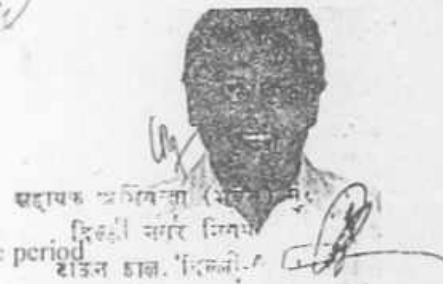 सहायक अभियन्ता (भवन)
दिल्ली नगर निगम
e period
टाऊन हाल, दिल्ली-